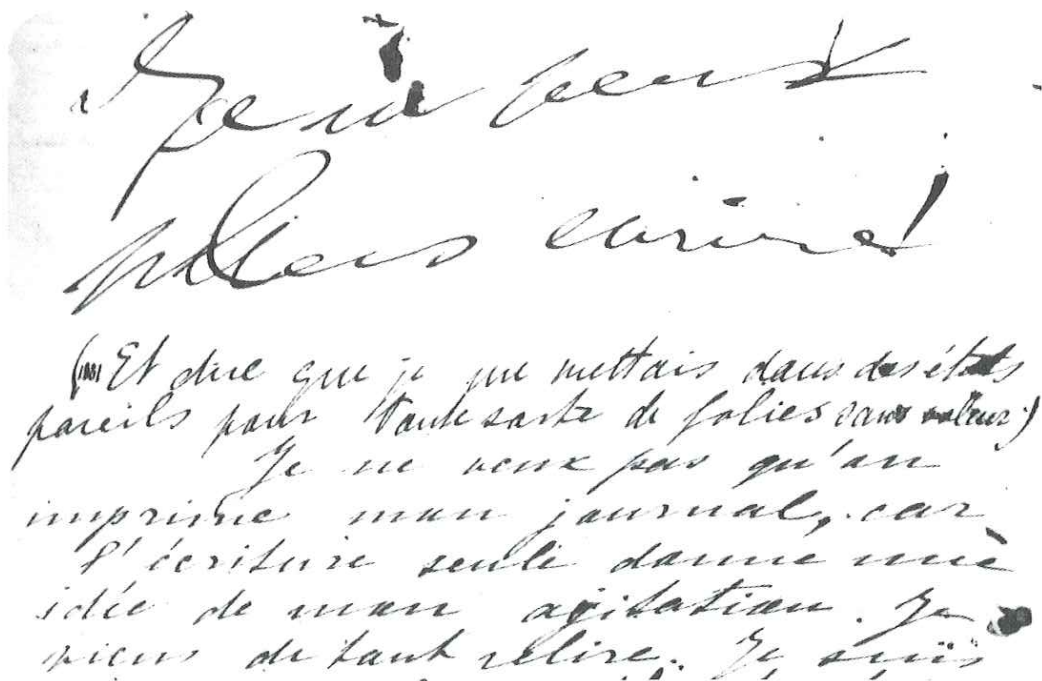 Je ne peux
plus écrire!
(1881 Et dire que je me mettais dans des états
pareils pour toute sorte de folies sans valeur.)
Je ne veux pas qu'on
imprime mon journal, car
l'écriture seule donne une
idée de mon agitation. Je
viens de tout relire. Je suis